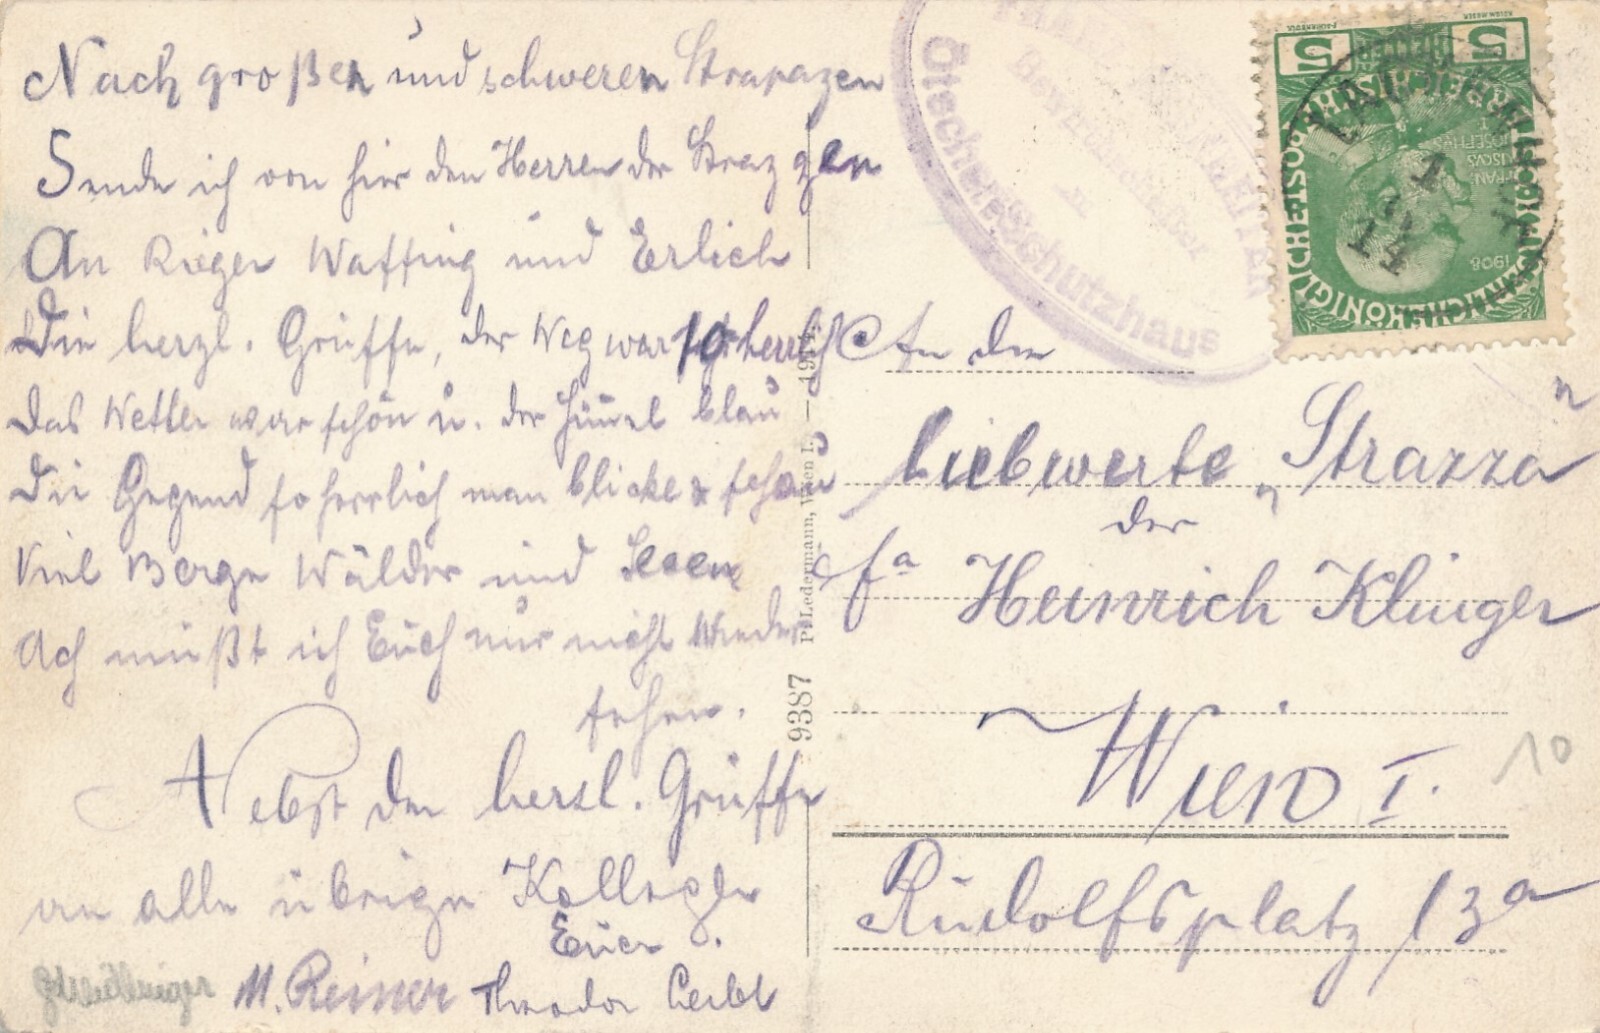 Nach großen und schweren Strapazen
Sende ich von hier den Herren der Strazzen
An Rieger Waffing und Erlich
Die herzl. Grüsse, der Weg war so herrlich
Das Wetter war schön u. der Himmel blau
Die Gegend so herrlich man blicke & schau
Viel Berge Wälder und Seeen
Ach müßt ich Euch nur nicht Wieder
sehen.
Nebst den herzl. Grüsse
an alle übrige Kollegen
Euer
M. Reiner Theodor
9387 P. Ledermann, Wien I. — 191
Ötscher-Schutzhaus
5 5
HELLER
KAISERLICHE KÖNIGLICHE ÖSTERREICHISCHE POST
1908
An die
Liebwerte Strazza
der
fa Heinrich Klinger
Wien I.
Rudolfsplatz 13a
10